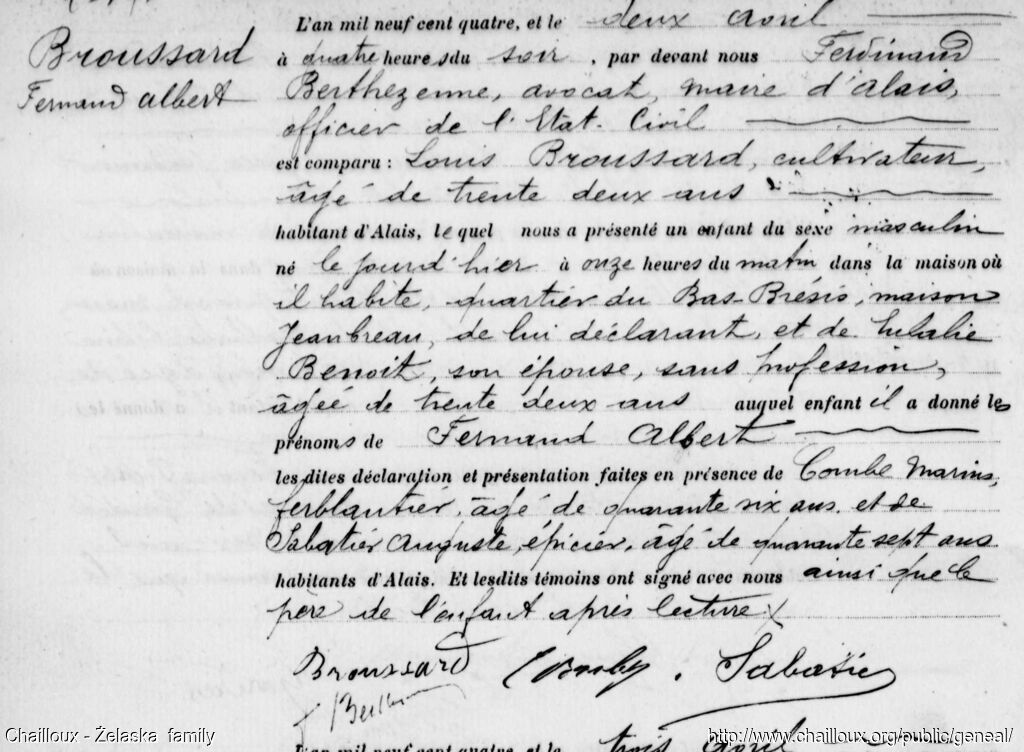 Broussard
Fernand Albert
L'an mil neuf cent quatre, et le deux avril
à quatre heures du soir, par devant nous Ferdinand
Berthezenne, avocat, maire d'Alais,
officier de l'Etat-Civil
est comparu : Louis Broussard, cultivateur,
âgé de trente deux ans
habitant d'Alais, lequel nous a présenté un enfant du sexe masculin
né le jourd'hier à onze heures du matin, dans la maison où
il habite, quartier du Bas-Brésis, maison
Jeanbreau, de lui déclarant, et de Eulalie
Benoit, son épouse, sans profession,
âgée de trente deux ans auquel enfant il a donné les
prénoms de Fernand Albert
les dites déclaration et présentation faites en présence de Combe Marius,
ferblantier, âgé de quarante six ans et de
Sabatier Auguste, épicier, âgé de quarante sept ans
habitants d'Alais. Et lesdits témoins ont signé avec nous ainsi que le
père de l'enfant après lecture
Broussard Sabatier
L'an mil neuf cent quatre, et le trois avril
Chailloux - Żelaska family
http://www.chailloux.org/public/geneal/